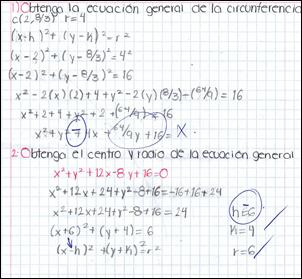 1) Obtenga la ecuación general de la circunferencia
c(2,8/3) r=4
(x-h)²+(y-k)²=r²
(x-2)²+(y-8/3)²=4²
(x-2)²+(y-8/3)²=16
x²-2(x)(2)+4+y²-2(y)(8/3)-(64/9)=16
x²+2+4+y²+2+(64/9)=16
x²+y-7-1x+64/9y+16=x
2. Obtenga el centro y radio de la ecuación general
x²+y²+12x-8y+16=0
x²+12x+24+y²-8+16=-16+16+24
x²+12x+24+y²-8+16=24
h=6
(x+6)²+(y+4)=6
k=4
(x-h)²+(y+k)²=r²
r=6